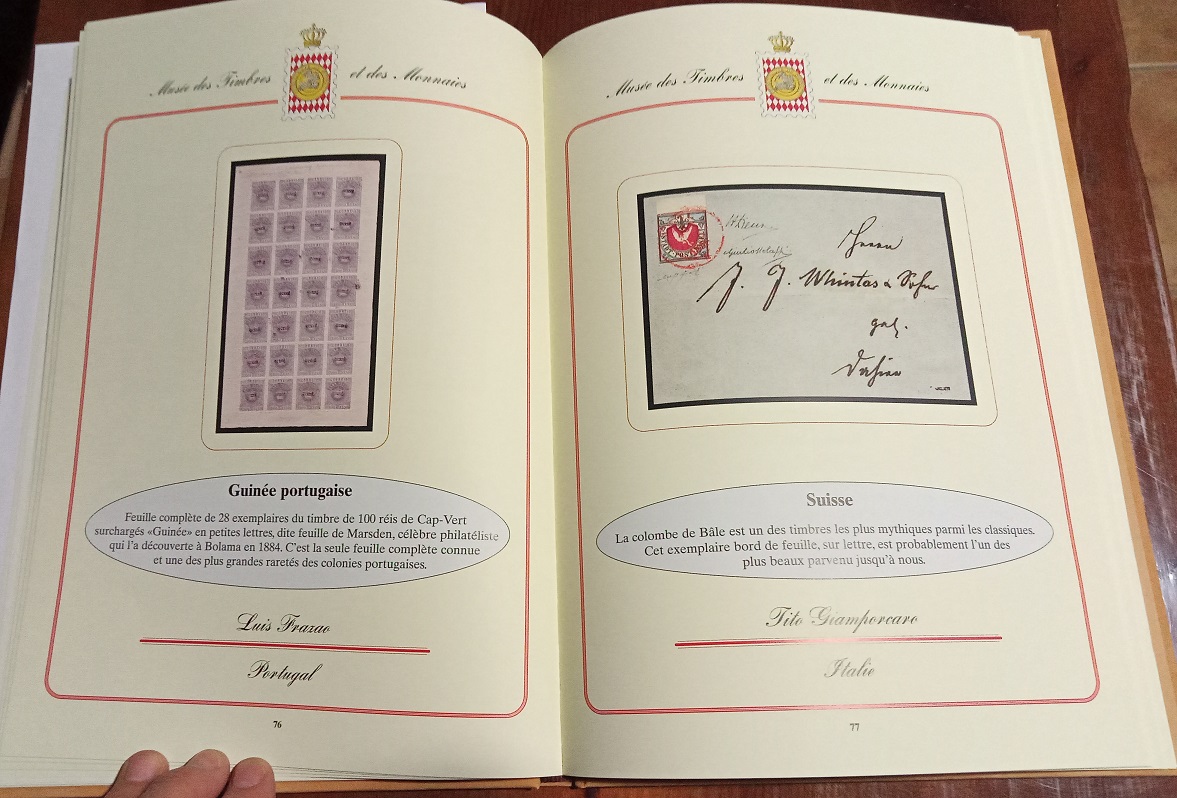 Musée des Timbres et des Monnaies
Guinée portugaise
Feuille complète de 28 exemplaires du timbre de 100 réis de Cap-Vert
surchargés «Guinée» en petites lettres, dite feuille de Marsden, célèbre philatéliste
qui l'a découverte à Bolama en 1884. C'est la seule feuille complète connue
et une des plus grandes raretés des colonies portugaises.
Luis Frazao
Portugal
76
Musée des Timbres et des Monnaies
J. J.
Suisse
La colombe de Bâle est un des timbres les plus mythiques parmi les classiques.
Cet exemplaire bord de feuille, sur lettre, est probablement l'un des
plus beaux parvenu jusqu'à nous.
Tito Giamporcaro
Italie
77